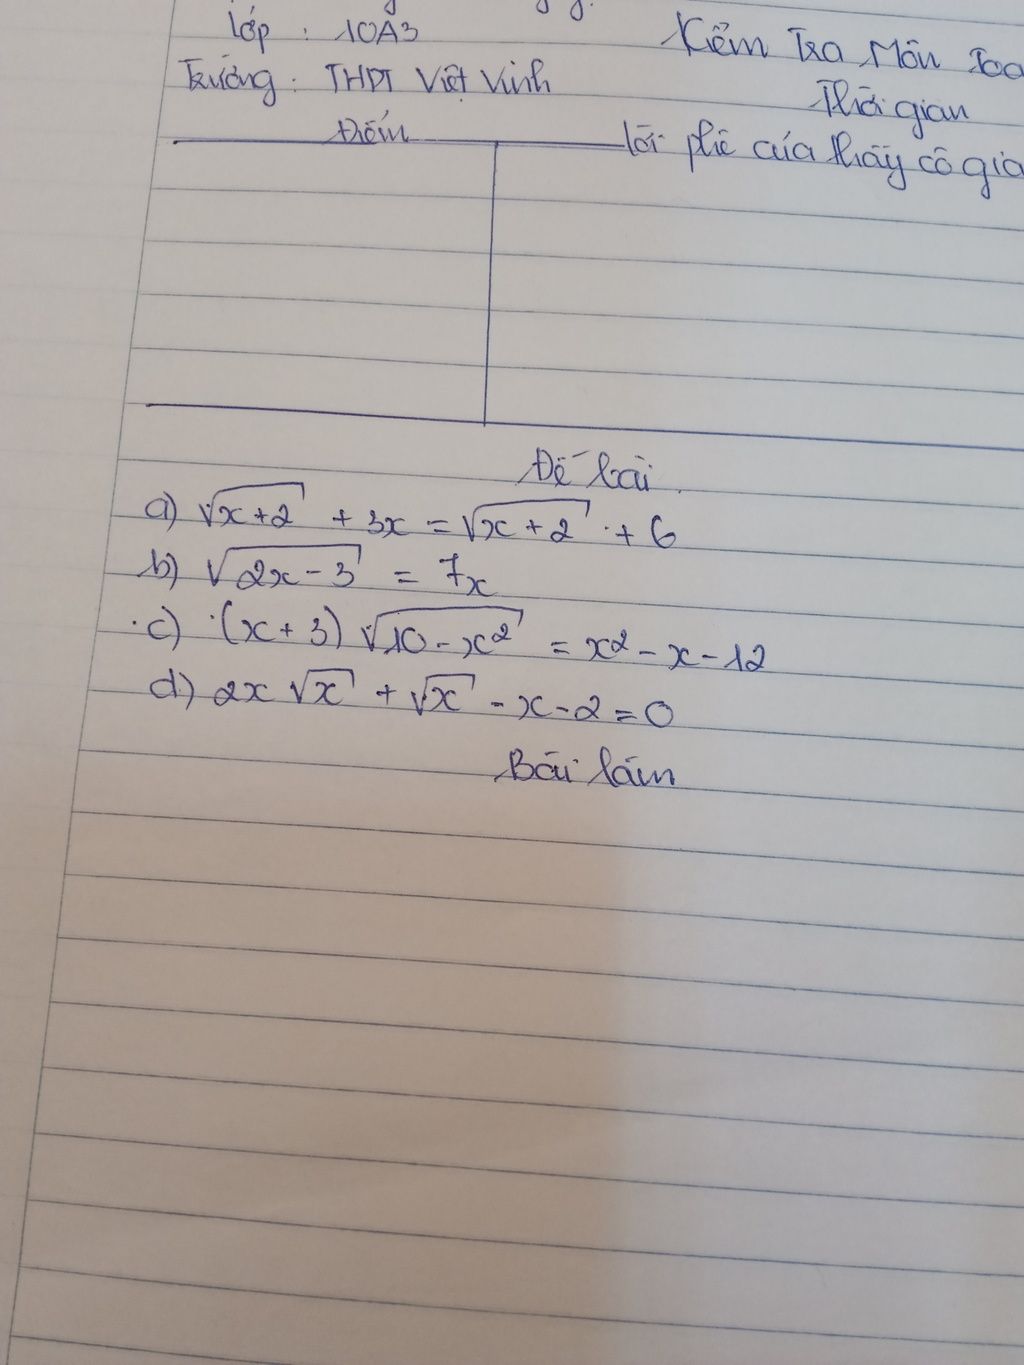 Lớp : 10A3
Trường : THPT Việt Vinh
Kiểm Tra Môn Toá
Thời gian
Điểm
lời phê của thầy cô giá
Đề bài
a) √x+2 + 3x = √x+2 + 6
b) √2x-3 = 7x
c) (x+3) √10-x² = x² - x - 12
d) 2x √x + √x - x - 2 = 0
Bài làm